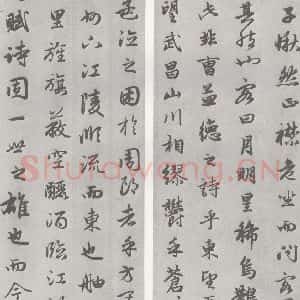 子愀然正襟危坐而問
其然也客曰月明星稀烏鵲
此非曹孟德之詩乎東望
望武昌山川相繆鬱乎蒼
德之困於周郎者乎方
州下江陵順流而東也舳
里旌旗蔽空釃酒臨江
賦詩固一世之雄也而今
Shufawang.CN